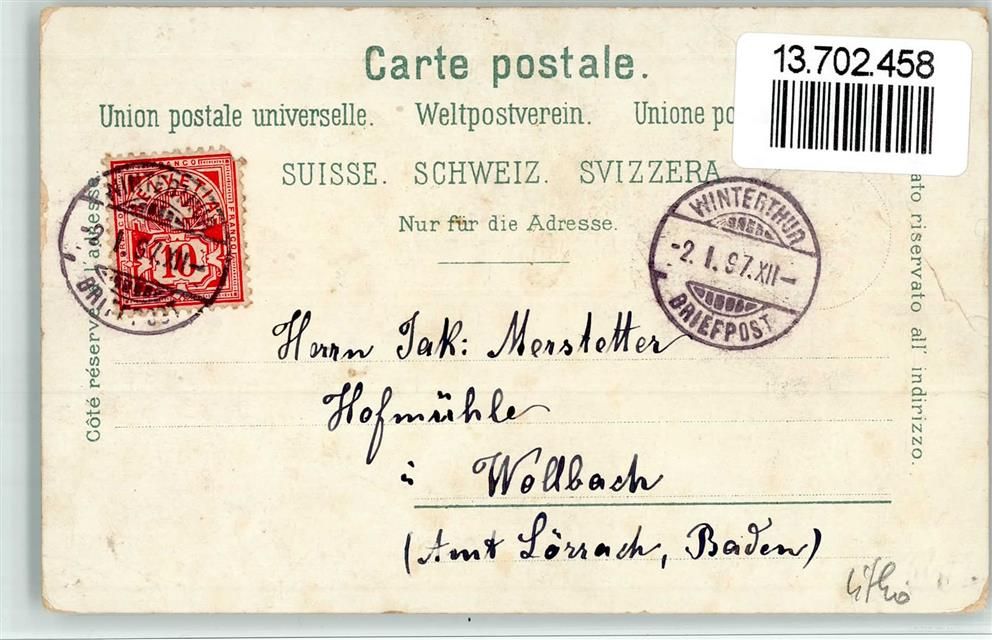 13.702.458
Carte postale.
Union postale universelle. Weltpostverein. Unione po
SUISSE. SCHWEIZ. SVIZZERA
Nur für die Adresse.
Côté réservé à l'adresse.
ato riservato all' indirizzo.
FRANCO
FRANCO
10
97.XII-
WINTERTHUR
-2.I.97.XII-
BRIEFPOST
Herrn Jak: Merstetter
Hofmühle
in Wollbach
(Amt Lörrach, Baden)
Litho